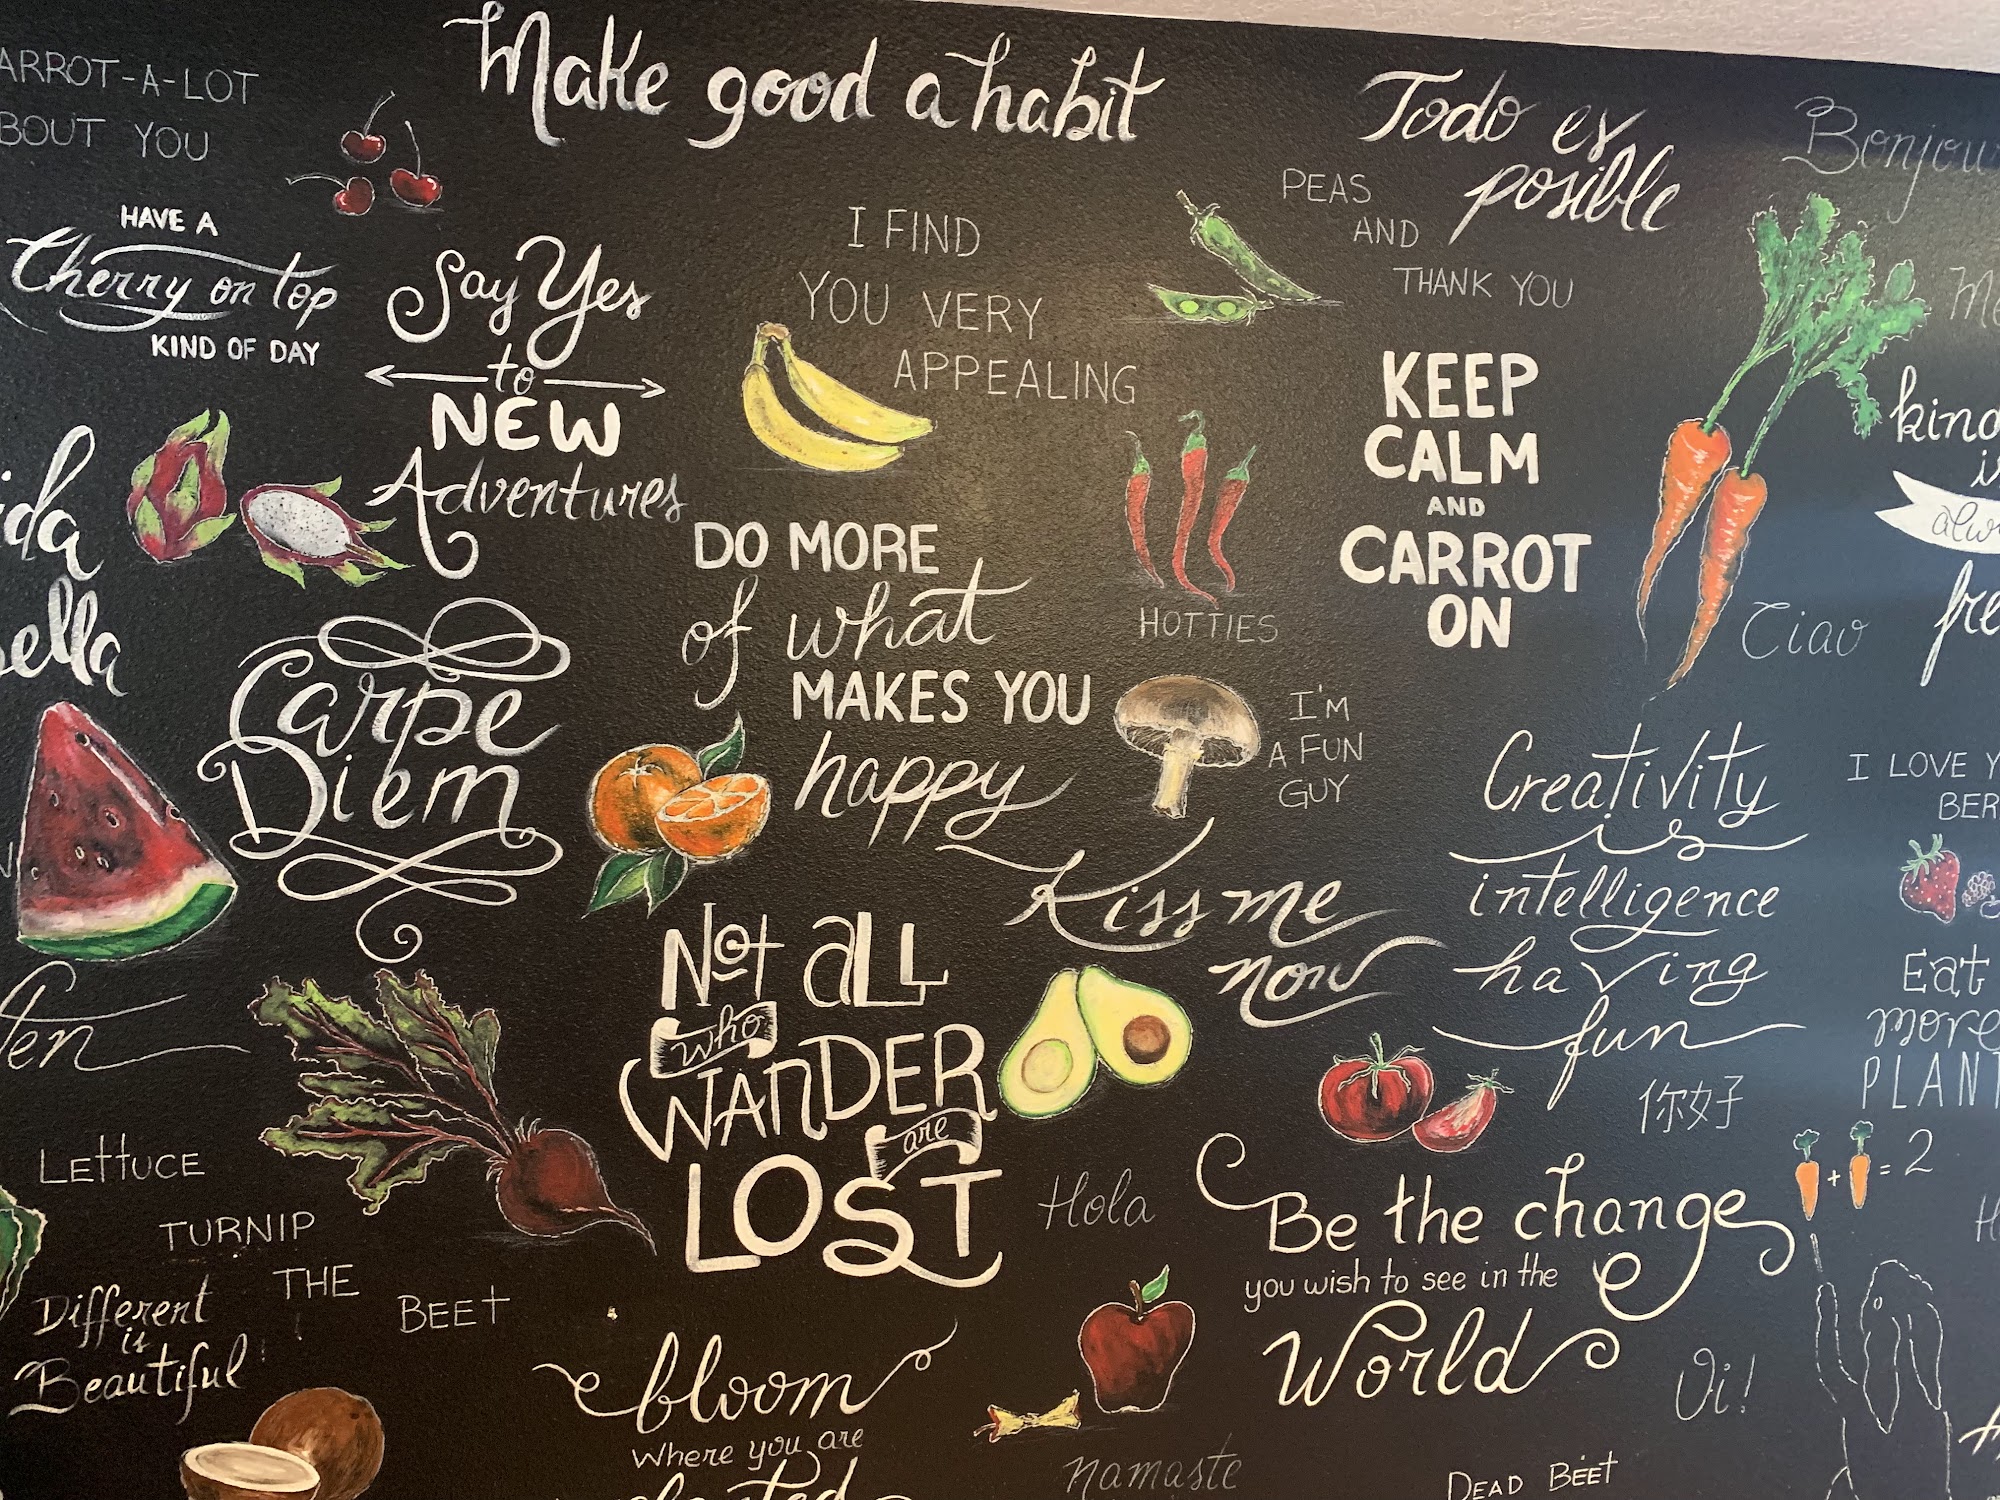 Make good a habit
ARROT-A-LOT
BOUT YOU
Todo es
posible
Bonjou
HAVE A
Cherry on top
KIND OF DAY
Say Yes
to
NEW
Adventures
I FIND
YOU VERY
APPEALING
PEAS
AND
THANK YOU
KEEP
CALM
AND
CARROT
ON
HOTTIES
Ciao
kind
is
alw
fre
ida
ella
Carpe
Diem
DO MORE
of what
MAKES YOU
happy
I'M
A FUN
GUY
Kiss me
now
Creativity
is
intelligence
having
fun
I LOVE Y
BER
Eat
more
PLANT
+ = 2
Not all
who
WANDER
are
LOST
你好
Hola
Be the change
you wish to see in the
World
Oi!
LETTUCE
TURNIP
THE
BEET
Different
is
Beautiful
bloom
Where you are
planted
namaste
DEAD BEET